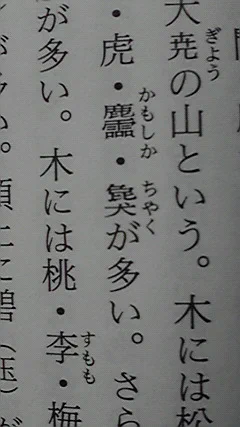 大尭の山という。木には松
ぎよう
・虎・麢・㲋が多い。さら
かもしか ちやく
が多い。木には桃・李・梅
すもも